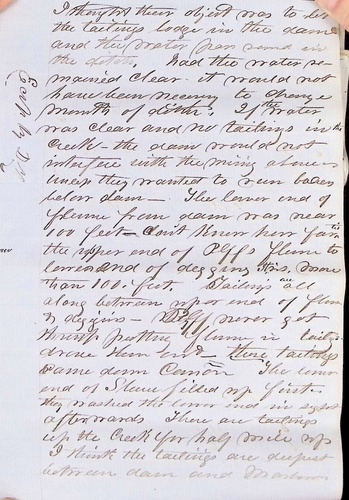 I thought their object was to let
the tailings lodge in the dam
and the water pass round in
the ditch. Had the water re-
mained clear it would not
have been necessary to change
mouth of ditch. If the water
was clear and no tailings in the
Creek - the dam would not
interfere with the mining above
unless they wanted to run
below dam - The lower end of
flume from dam was near
100 feet - don't know how far
the upper end of Plffs flume to
lower end of diggings is. More
than 100 feet. Tailings all
along between upper end of flume
& diggins - Plff never got
through putting flume in
drove them out - tailings
came down Canon The lower
end of Flume filled up first -
they washed the lower end in
afterwards There are tailings
up the Creek for half mile up
I think the tailings are deepest
between dam and